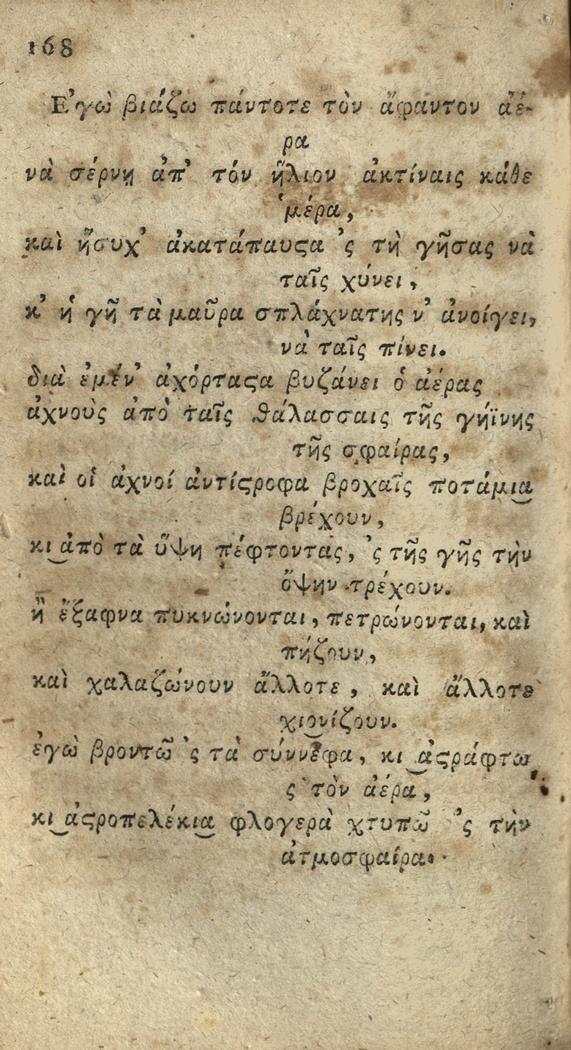 168
Ε'γὼ βιάζω πάντοτε τὸν ἄφαντον ἀέ-
ρα
νὰ σέρνῃ ἀπ' τόν ἥλιον ἀκτίναις κάθε
ἡμέρα,
καὶ ἥσυχ' ἀκατάπαυϛα 'ς τὴ γῆσας νὰ
ταῖς χύνει,
κ' ἡ γῆ τὰ μαῦρα σπλάχνατης ν' ἀνοίγει,
νὰ ταῖς πίνει.
διὰ ἐμέν' ἀχόρταϛα βυζάνει ὁ ἀέρας
ἀχνοὺς ἀπὸ ταῖς θάλασσαις τῆς γηΐνης
τῆς σφαίρας,
καὶ οἱ ἀχνοί ἀντίϛροφα βροχαῖς ποτάμι͜α
βρέχουν,
κι͜ ἀπὸ τὰ ὕψη πέφτοντας, 'ς τῆς γῆς τὴν
ὄψην τρέχουν.
ἢ ἔξαφνα πυκνώνονται, πετρώνονται, καὶ
πήζουν,
καὶ χαλαζώνουν ἄλλοτε, καὶ ἄλλοτε
χι͜ονίζουν.
ἐγὼ βροντῶ 'ς τὰ σύννεφα, κι͜ ἀϛράφτω
ς τὸν ἀέρα,
κι͜ ἀϛροπελέκι͜α φλογερὰ χτυπῶ 'ς τὴν
ἀτμοσφαίρα.